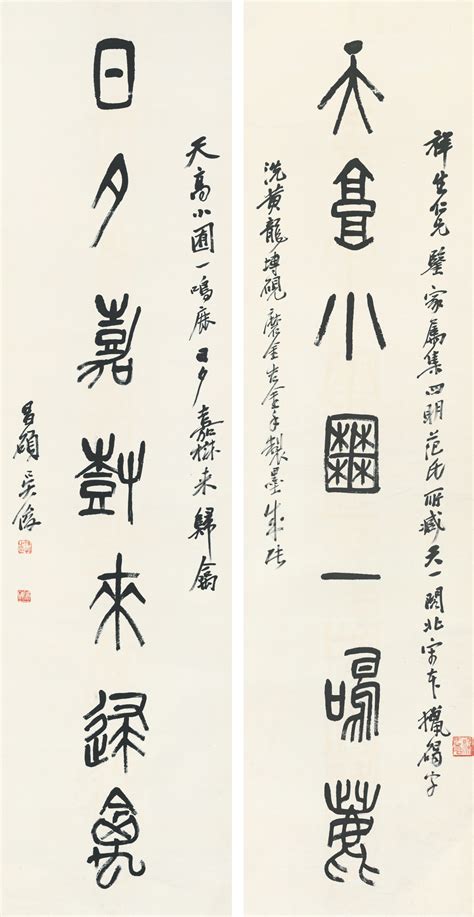 祥生仁兄鑒家屬集四明范氏所藏天一閣北宋本獵碣字
天高小圃一鳴鹿
洗黃龍塼硯磨金手製墨
天高小圃一鳴鹿日夕嘉樹來歸禽
日夕嘉樹來歸禽
昌碩吳俊